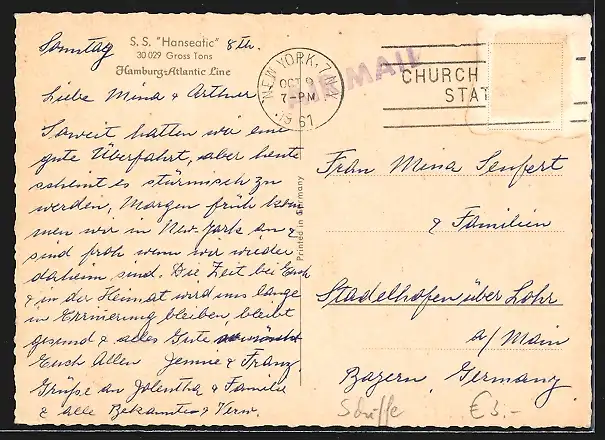 Sonntag 8th.
S. S. "Hanseatic"
30 029 Gross Tons
Hamburg-Atlantic Line
Liebe Mina & Arthur
Soweit hatten wir eine
gute Überfahrt, aber heute
scheint es stürmisch zu
werden, Morgen früh kom
men wir in New York an &
sind froh wenn wir wieder
daheim sind. Die Zeit bei Euch
& in der Heimat wird uns lange
in Errinerung bleiben, bleibt
gesund & alles Gute wünscht
Euch Allen Jennie & Franz
Grüße an Jolentha & Familie
& alle Bekannten & Verw.
Printed in Germany
NEW YORK, N.Y.
OCT 9
7-PM
1961
AIR MAIL
CHURCH
STAT
Frau Mina Senfert
& Familien
Stadelhofen über Lohr
a/Main
Bayern, Germany
Schiffe €3.-